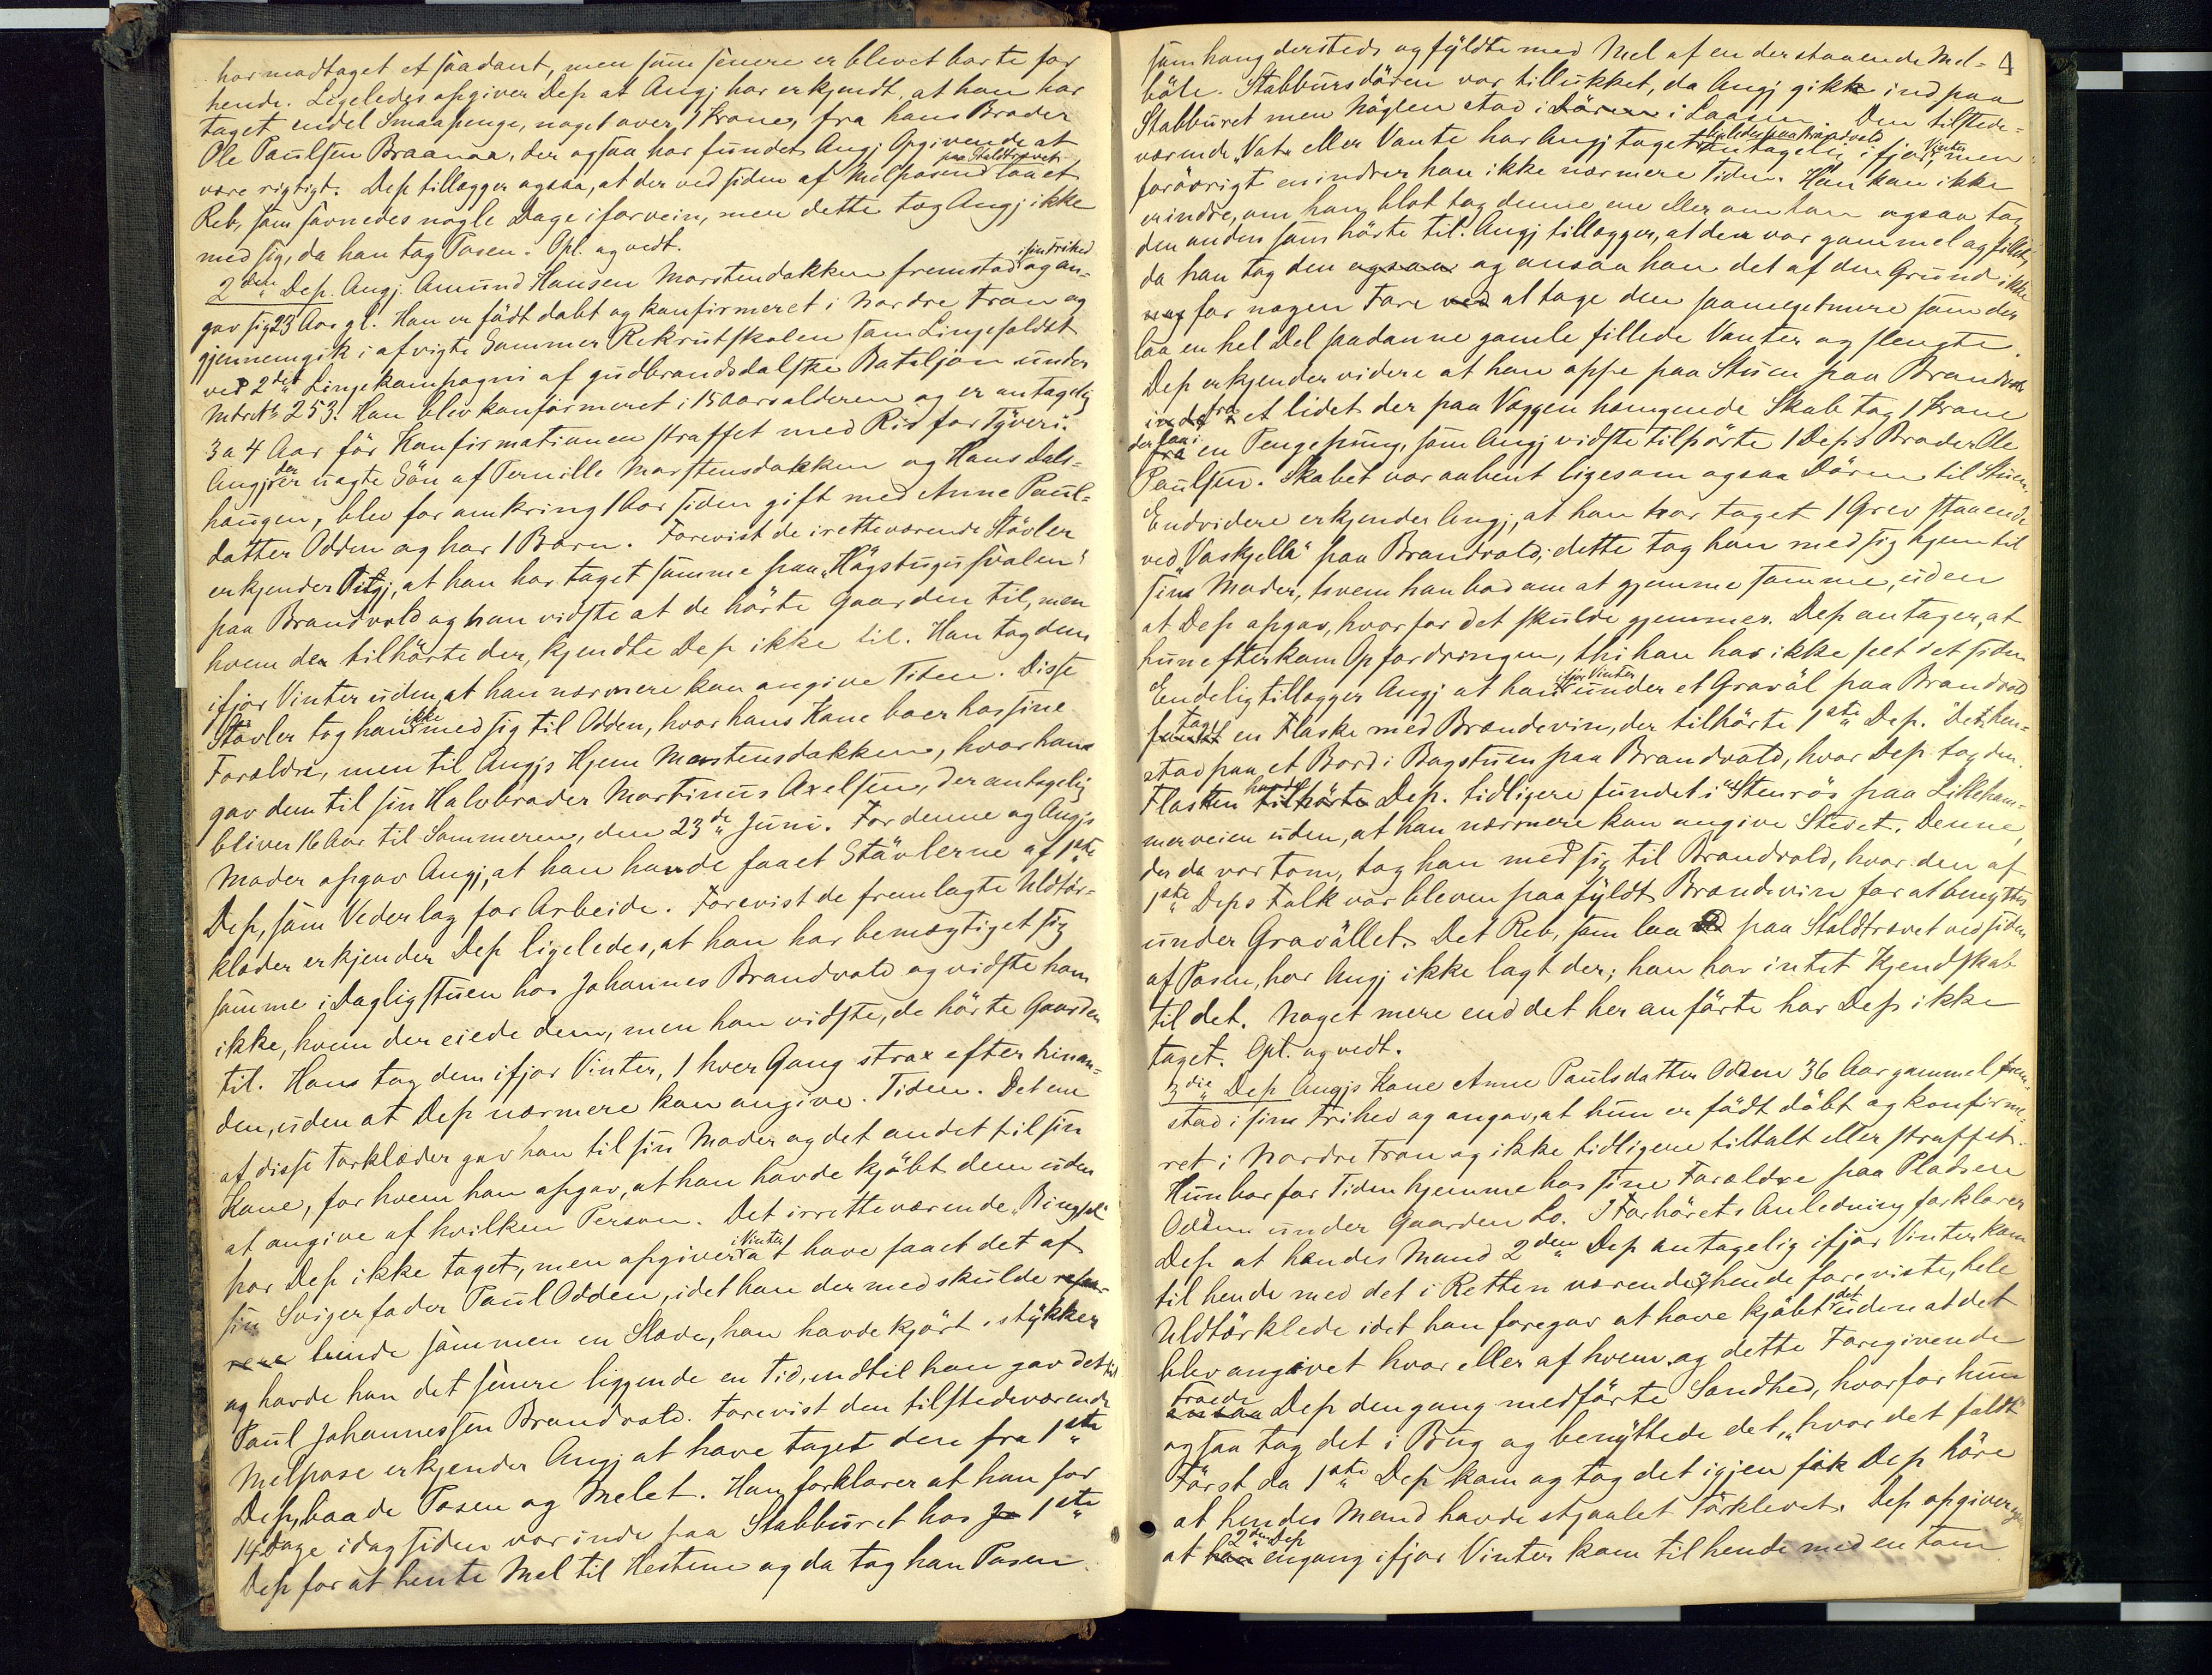 har modtaget et saadant, men som senere er blevet borte for
hende. Ligeledes opgiver Dep at Angj har erkjendt, at han har
taget endel Smaapenge, noget over 1 Krone, fra hans Broder
Ole Paulsen Braanaa, der ogsaa har fundet Angj Opgivende at
være rigtigt. Dep tillægger ogsaa, at der ved siden af Melposen paa Staldtrævet laa et
Reb, som savnedes nogle Dage iforvein, men dette tog Angj ikke
med sig, da han tog Posen. Opl. og vedt.
2den Dep. Angj. Amund Hansen Morstendokken fremstod i sin frihed og an-
gav sig 23 Aar gl. Han er födt döbt og konfirmeret i Nordre Fron og
gjennemgik i afvigte Sommer Rekrutskolen som Linjesoldat
ved 2det Linjekompagni af gudbrandsdalske Bataljon under
Mtr No 253. Han blev konfirmeret i 15 Aarsalderen og er antagelig
3 a 4 Aar för Konfirmationen straffet med Ris for Tyveri.
Angj der er uægte Sön af Pernille Morstensdokken og Hans Dals-
haugen, blev for omkring 1 Aar siden gift med Anne Pauls-
datter Odden og har 1 Barn. Forevist de iretteværende Stövler
erkjender Angj, at han har taget samme paa "Högstugusvalen"
paa Brandvold og han vidste at de hörte Gaarden til, men
hvem den tilhörte der, kjendte Dep ikke til. Han tog dem
ifjor Vinter uden at han nærmere kan angive Tiden. Disse
Stövler tog han ikke med sig til Odden, hvor hans Kone boer hos sine
Forældre, men til Angjs Hjem Morstensdokken, hvor han
gav dem til sin Halvbroder Martinus Axelsen, der antagelig
bliver 16 Aar til Sommeren, den 23de Juni. For denne og Angjs
Moder opgav Angj, at han havde faaet Stövlerne af 1ste
Dep, som Vederlag for Arbeide. Forevist de fremlagte Uldtör-
klæder erkjender Dep ligeledes, at han har bemægtiget sig
samme i Dagligstuen hos Johannes Brandvold og vidste han
ikke, hvem der eiede dem, men han vidste, de hörte Gaarden
til. Hans tog dem ifjor Vinter, 1 hver Gang strax efter hinan-
den, uden at Dep nærmere kan angive Tiden. Det ene
af disse Törklæder gav han til sin Moder og det andet til sin
Kone, for hvem han opgav, at han havde kjöbt dem uden
at angive af hvilken Person. Det irretteværende "Bingsel"
har Dep ikke taget, men opgiver i Vinter at have faaet det af
sin Svigerfader Paul Odden, idet han der med skulde repa-
rere binde sammen en Slæde, han havde kjört i stykker
og havde han det senere liggende en Tid, indtil han gav det til
Paul Johannessen Brandvold. Forevist den tilstedeværende
Melpose erkjender Angj at have taget den fra 1ste
Dep, baade Posen og Melet. Han forklarer at han for
14 Dage idag siden var inde paa Stabburet hos Jo 1ste
Dep for at hente Mel til Hestene og da tog han Posen
4
som hang dersteds og fyldte med Mel af en der staaende Mel-
böle. Stabbursdören var tillukket, da Angj gikk ind paa
Stabburet men Nöglen stod i Dören i Laasen. Den tilstede-
værende "Vat" eller Vante har Angj taget ligeledes paa Brandvold antagelig ifjor Vinter, men
forövrigt erindrer han ikke nærmere Tiden. Han kan ikke
erindre, om han blot tog denne ene eller om han ogsaa tog
den anden som hörte til. Angj tillægger, at den var gammel og fillet,
da han tog den ogsaa og ansaa han det af den Grund ikke
nog for nogen Fare ved at tage den saameget mere som der
laa en hel Del saadanne gamle fillede Vanter og slengte.
Dep erkjender videre at han oppe paa Stuen paa Brandvold
inde fra et lidet der paa Væggen hængende Skab tog 1 Krone
der laa i fra en Pengepung, som Angj vidste tilhörte 1 Deps Broder Ole
Paulsen. Skabet var aabent ligesom ogsaa Dören til Stuen.
Endvidere erkjender Angj, at han har taget 1 Grev staaende
ved "Vaskjella" paa Brandvold; dette tog han med sig hjem til
sin Moder, hvem han bad om at gjemme samme, uden
at Dep opgav, hvorfor det skulde gjemmes. Dep antager, at
hun efterkom Opfordringen, thi han har ikke seet det siden
Endelig tillægger Angj at han ifjor Vinter under et Gravöl paa Brandvold
fandt tog en Flaske med Brændevin, der tilhörte 1ste Dep. Det hen-
stod paa et Bord i Bagstuen paa Brandvold, hvor Dep tog den.
Flasken tilhörte havde Dep. tidligere fundet i en Stenrös paa Lilleham-
merveien uden, at han nærmere kan angive Stedet. Denne,
der da var tom, tog han med sig til Brandvold, hvor den af
1ste Deps Folk var bleven paafyldt Brændevin for at benyttes
under Gravöllet. Det Reb, som laa paa Staldtrævet ved siden
af Posen, har Angj ikke lagt der; han har intet Kjendskab
til det. Noget mere end det her anförte har Dep ikke
taget. Opl. og vedt.
3die Dep Angjs Kone Anne Paulsdatter Odden 36 Aar gammel frem-
stod i sin Frihed og angav, at hun er födt döbt og konfirme-
ret i Nordre Fron og ikke tidligere tiltalt eller straffet.
Hun bor for Tiden hjemme hos sine Forældre paa Pladsen
Odden under Gaarden Lo. I Forhörets Anledning forklarer
Dep at hendes Mand 2den Dep antagelig ifjor Vinter kom
til hende med det i Retten værende, hende foreviste, hele
Uldtörklede idet han foregav at have kjöbt det uden at det
blev angivet hvor eller af hvem, og dette Foregivende
ansaa troede Dep dengang medförte Sandhed, hvorfor hun
ogsaa tog det i Brug og benyttede det, "hvor det faldt"
Först da 1ste Dep kom og tog det igjen fik Dep höre
at hendes Mand havde stjaalet Törkledet. Dep opgiver
at han 2den Dep engang ifjor Vinter kom til hende med en tom